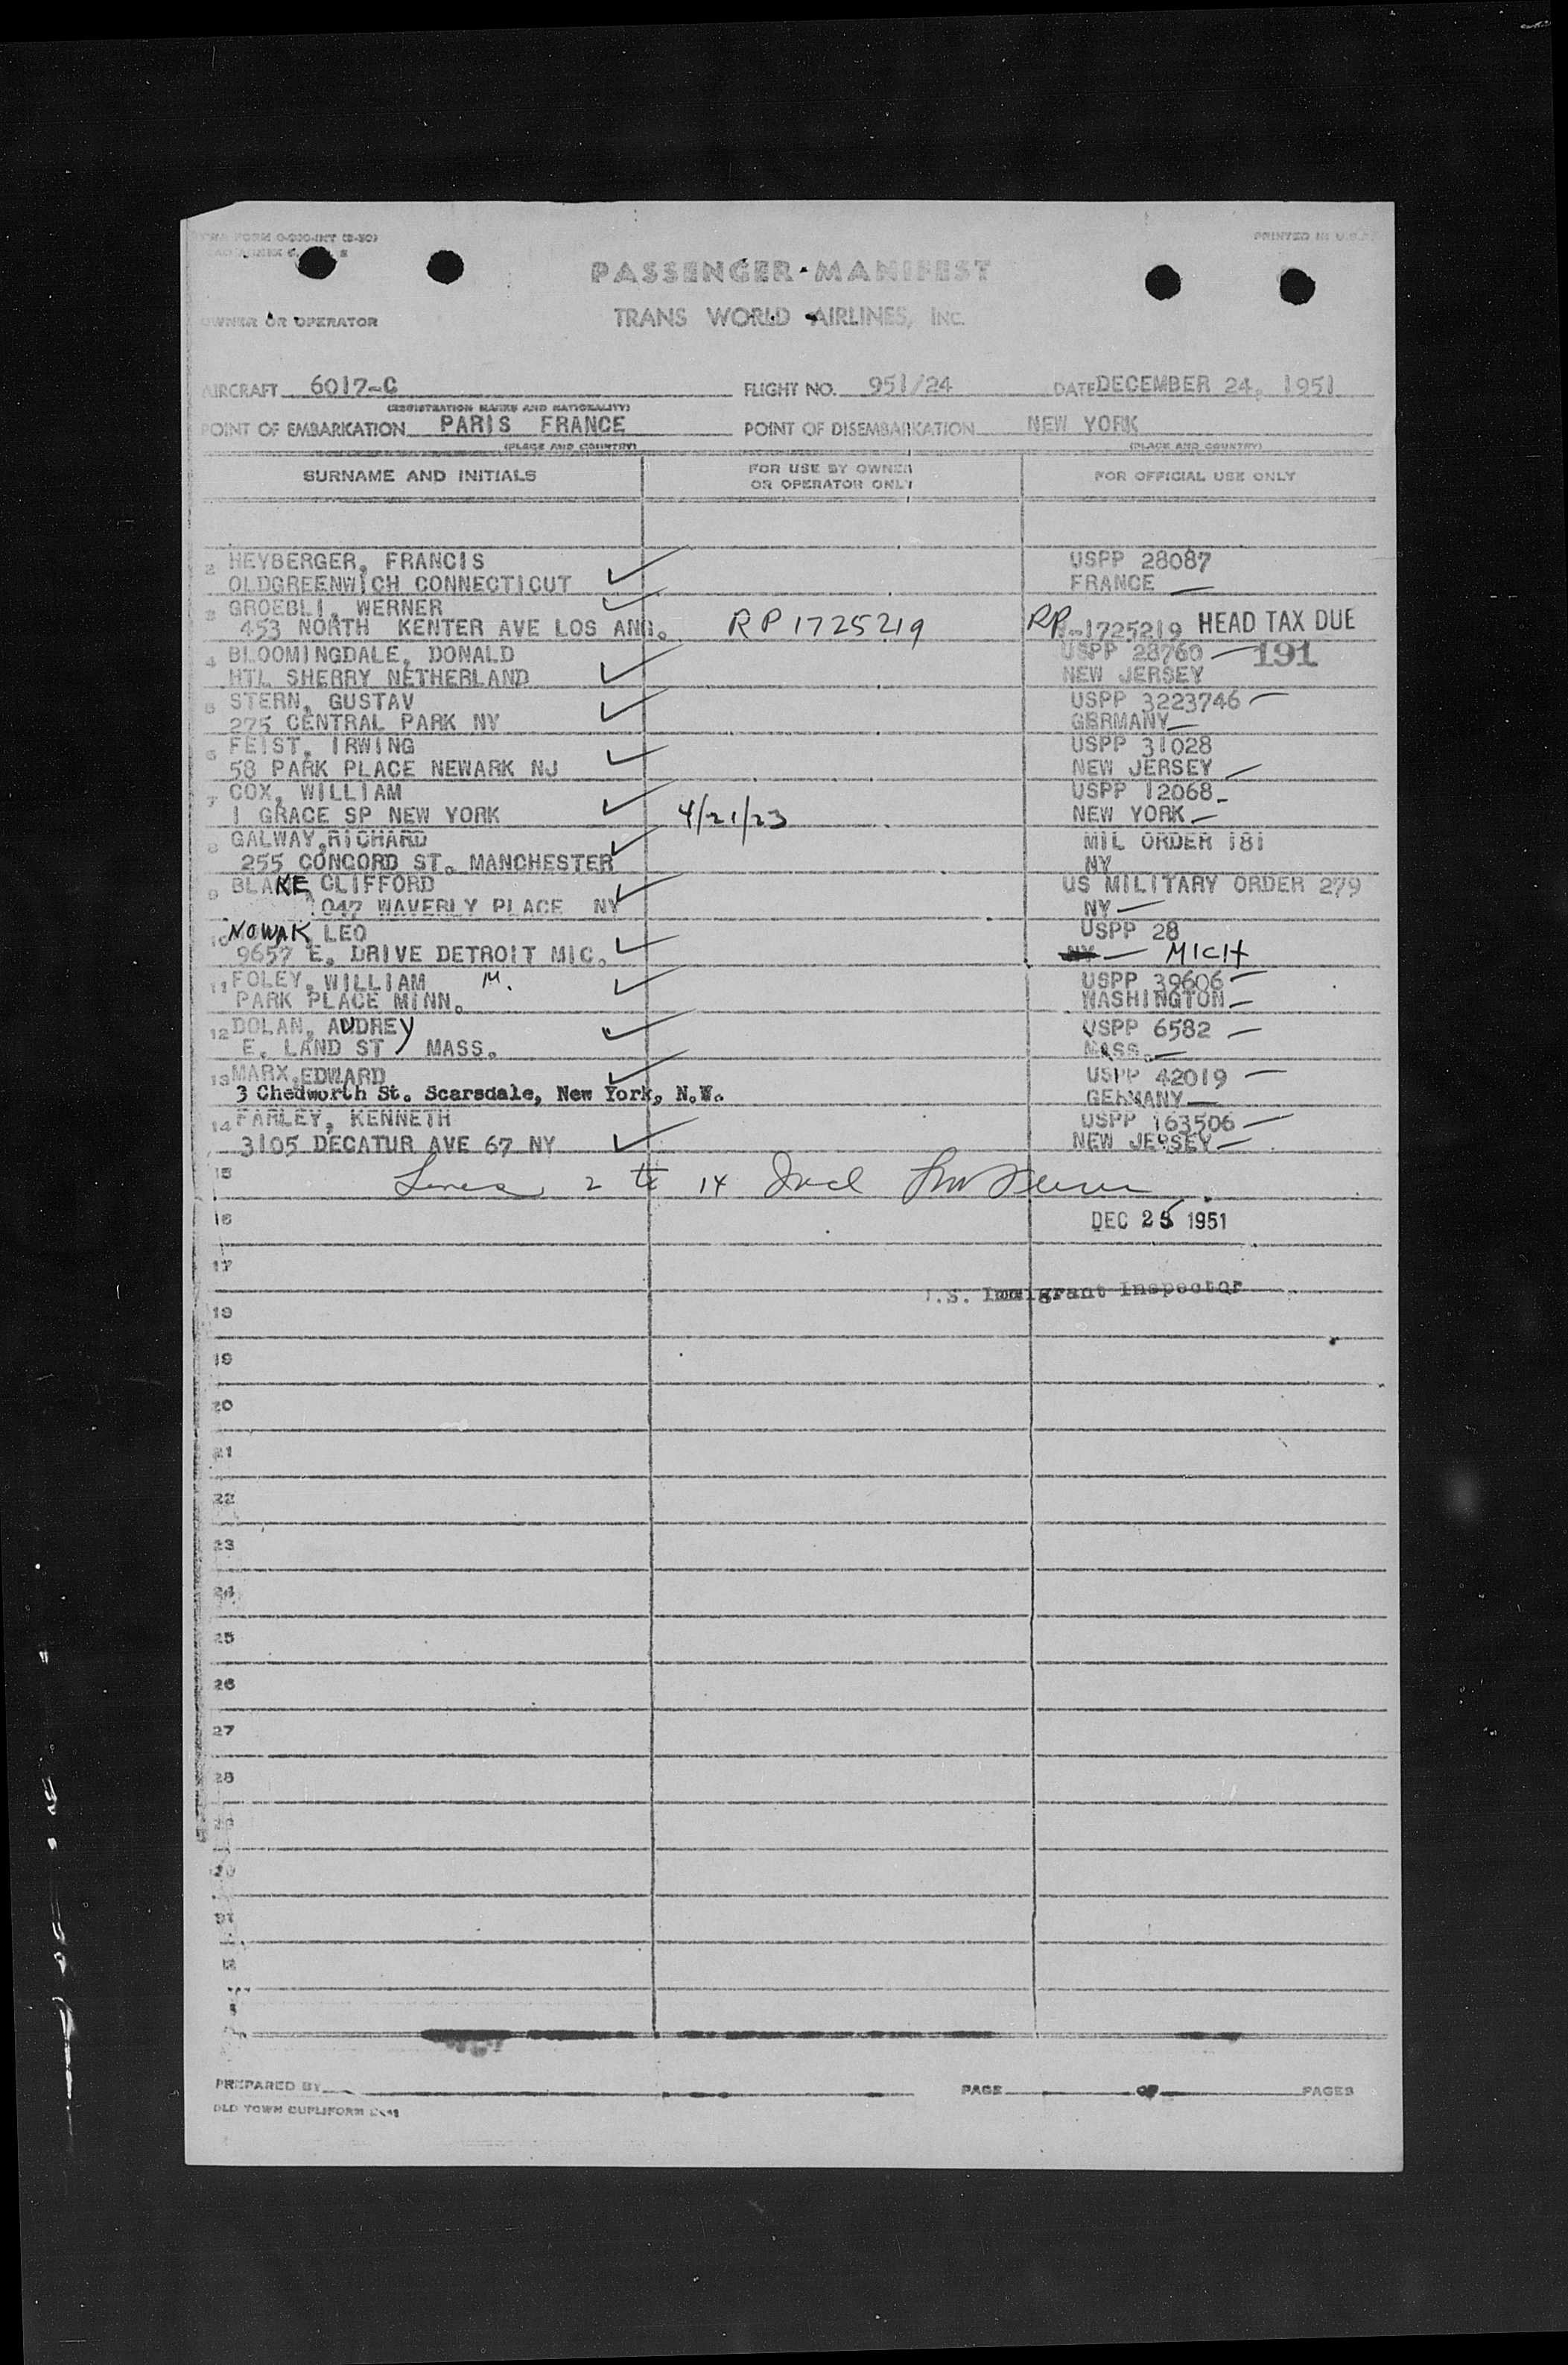 TWA FORM O-200-INT (5-50)
PRINTED IN U.S.A.
PASSENGER MANIFEST
OWNER OR OPERATOR TRANS WORLD AIRLINES, INC.
AIRCRAFT 6017-C FLIGHT NO. 951/24 DATE DECEMBER 24, 1951
(REGISTRATION MARKS AND NATIONALITY)
POINT OF EMBARKATION PARIS FRANCE POINT OF DISEMBARKATION NEW YORK
(PLACE AND COUNTRY) (PLACE AND COUNTRY)
SURNAME AND INITIALS FOR USE BY OWNER OR OPERATOR ONLY FOR OFFICIAL USE ONLY
2 HEYBERGER, FRANCIS USPP 28087
OLDGREENWICH CONNECTICUT FRANCE
3 GROEBLI, WERNER
453 NORTH KENTER AVE LOS ANG. RP 1725219 RP -1725219 HEAD TAX DUE
4 BLOOMINGDALE, DONALD USPP 28760 191
HTL SHERRY NETHERLAND NEW JERSEY
5 STERN, GUSTAV USPP 3223746
275 CENTRAL PARK NY GERMANY
6 FEIST, IRWING USPP 31028
58 PARK PLACE NEWARK NJ NEW JERSEY
7 COX, WILLIAM USPP 12068
1 GRACE SP NEW YORK 4/21/23 NEW YORK
8 GALWAY,RICHARD MIL ORDER 181
255 CONCORD ST. MANCHESTER NY
9 BLAKE, CLIFFORD US MILITARY ORDER 279
1047 WAVERLY PLACE NY NY
10 NOWAK, LEO USPP 28
9657 E. DRIVE DETROIT MIC. NY MICH
11 FOLEY, WILLIAM M. USPP 39606
PARK PLACE MINN. WASHINGTON
12 DOLAN, AUDREY USPP 6582
E. LAND ST MASS. MASS.
13 MARX,EDWARD USPP 42019
3 Chedworth St. Scarsdale, New York, N.Y. GERMANY
14 FARLEY, KENNETH USPP 163506
3105 DECATUR AVE 67 NY NEW JERSEY
15 Lines 2 to 14 Incl
16 DEC 25 1951
17
U.S. Immigrant Inspector
18
19
20
21
22
23
24
25
26
27
28
29
30
31
PREPARED BY PAGE OF PAGES
OLD TOWN DUPLIFORM